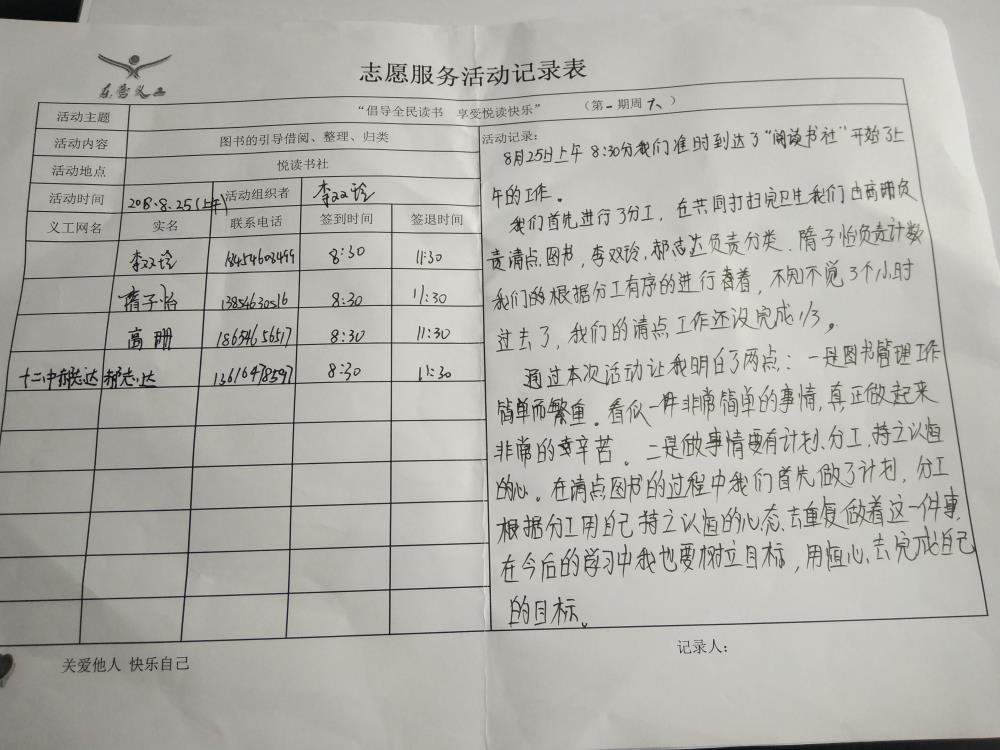 东营义工
志愿服务活动记录表
活动主题 “倡导全民读书 享受悦读快乐” （第一期周六）
活动内容 图书的引导借阅、整理、归类
活动地点 悦读书社
活动时间 2018.8.25(上午) 活动组织者 李双玲
义工网名 实名 联系电话 签到时间 签退时间
李双玲 18454603499 8:30 11:30
隋子怡 13854630516 8:30 11:30
高珊 18654656517 8:30 11:30
十二中郝志达 郝志达 13616478597 8:30 11:30
活动记录：
8月25日上午 8:30分我们准时到达了“阅读书社”开始了上
午的工作。
我们首先进行了分工，在共同打扫完卫生我们由高珊负
责清点图书，李双玲，郝志达负责分类、隋子怡负责计数
我们根据分工有序的进行着，不知不觉3个小时
过去了，我们的清点工作还没完成1/3。
通过本次活动让我明白了两点：一是图书管理工作
简单而繁重。看似一件非常简单的事情，真正做起来
非常的辛苦。二是做事情要有计划、分工、持之以恒
的心。在清点图书的过程中我们首先做了计划，分工
根据分工用自己持之以恒的心态，去重复做着这一件事，
在今后的学习中我也要树立目标，用恒心、去完成自己
的目标。
关爱他人 快乐自己
记录人：